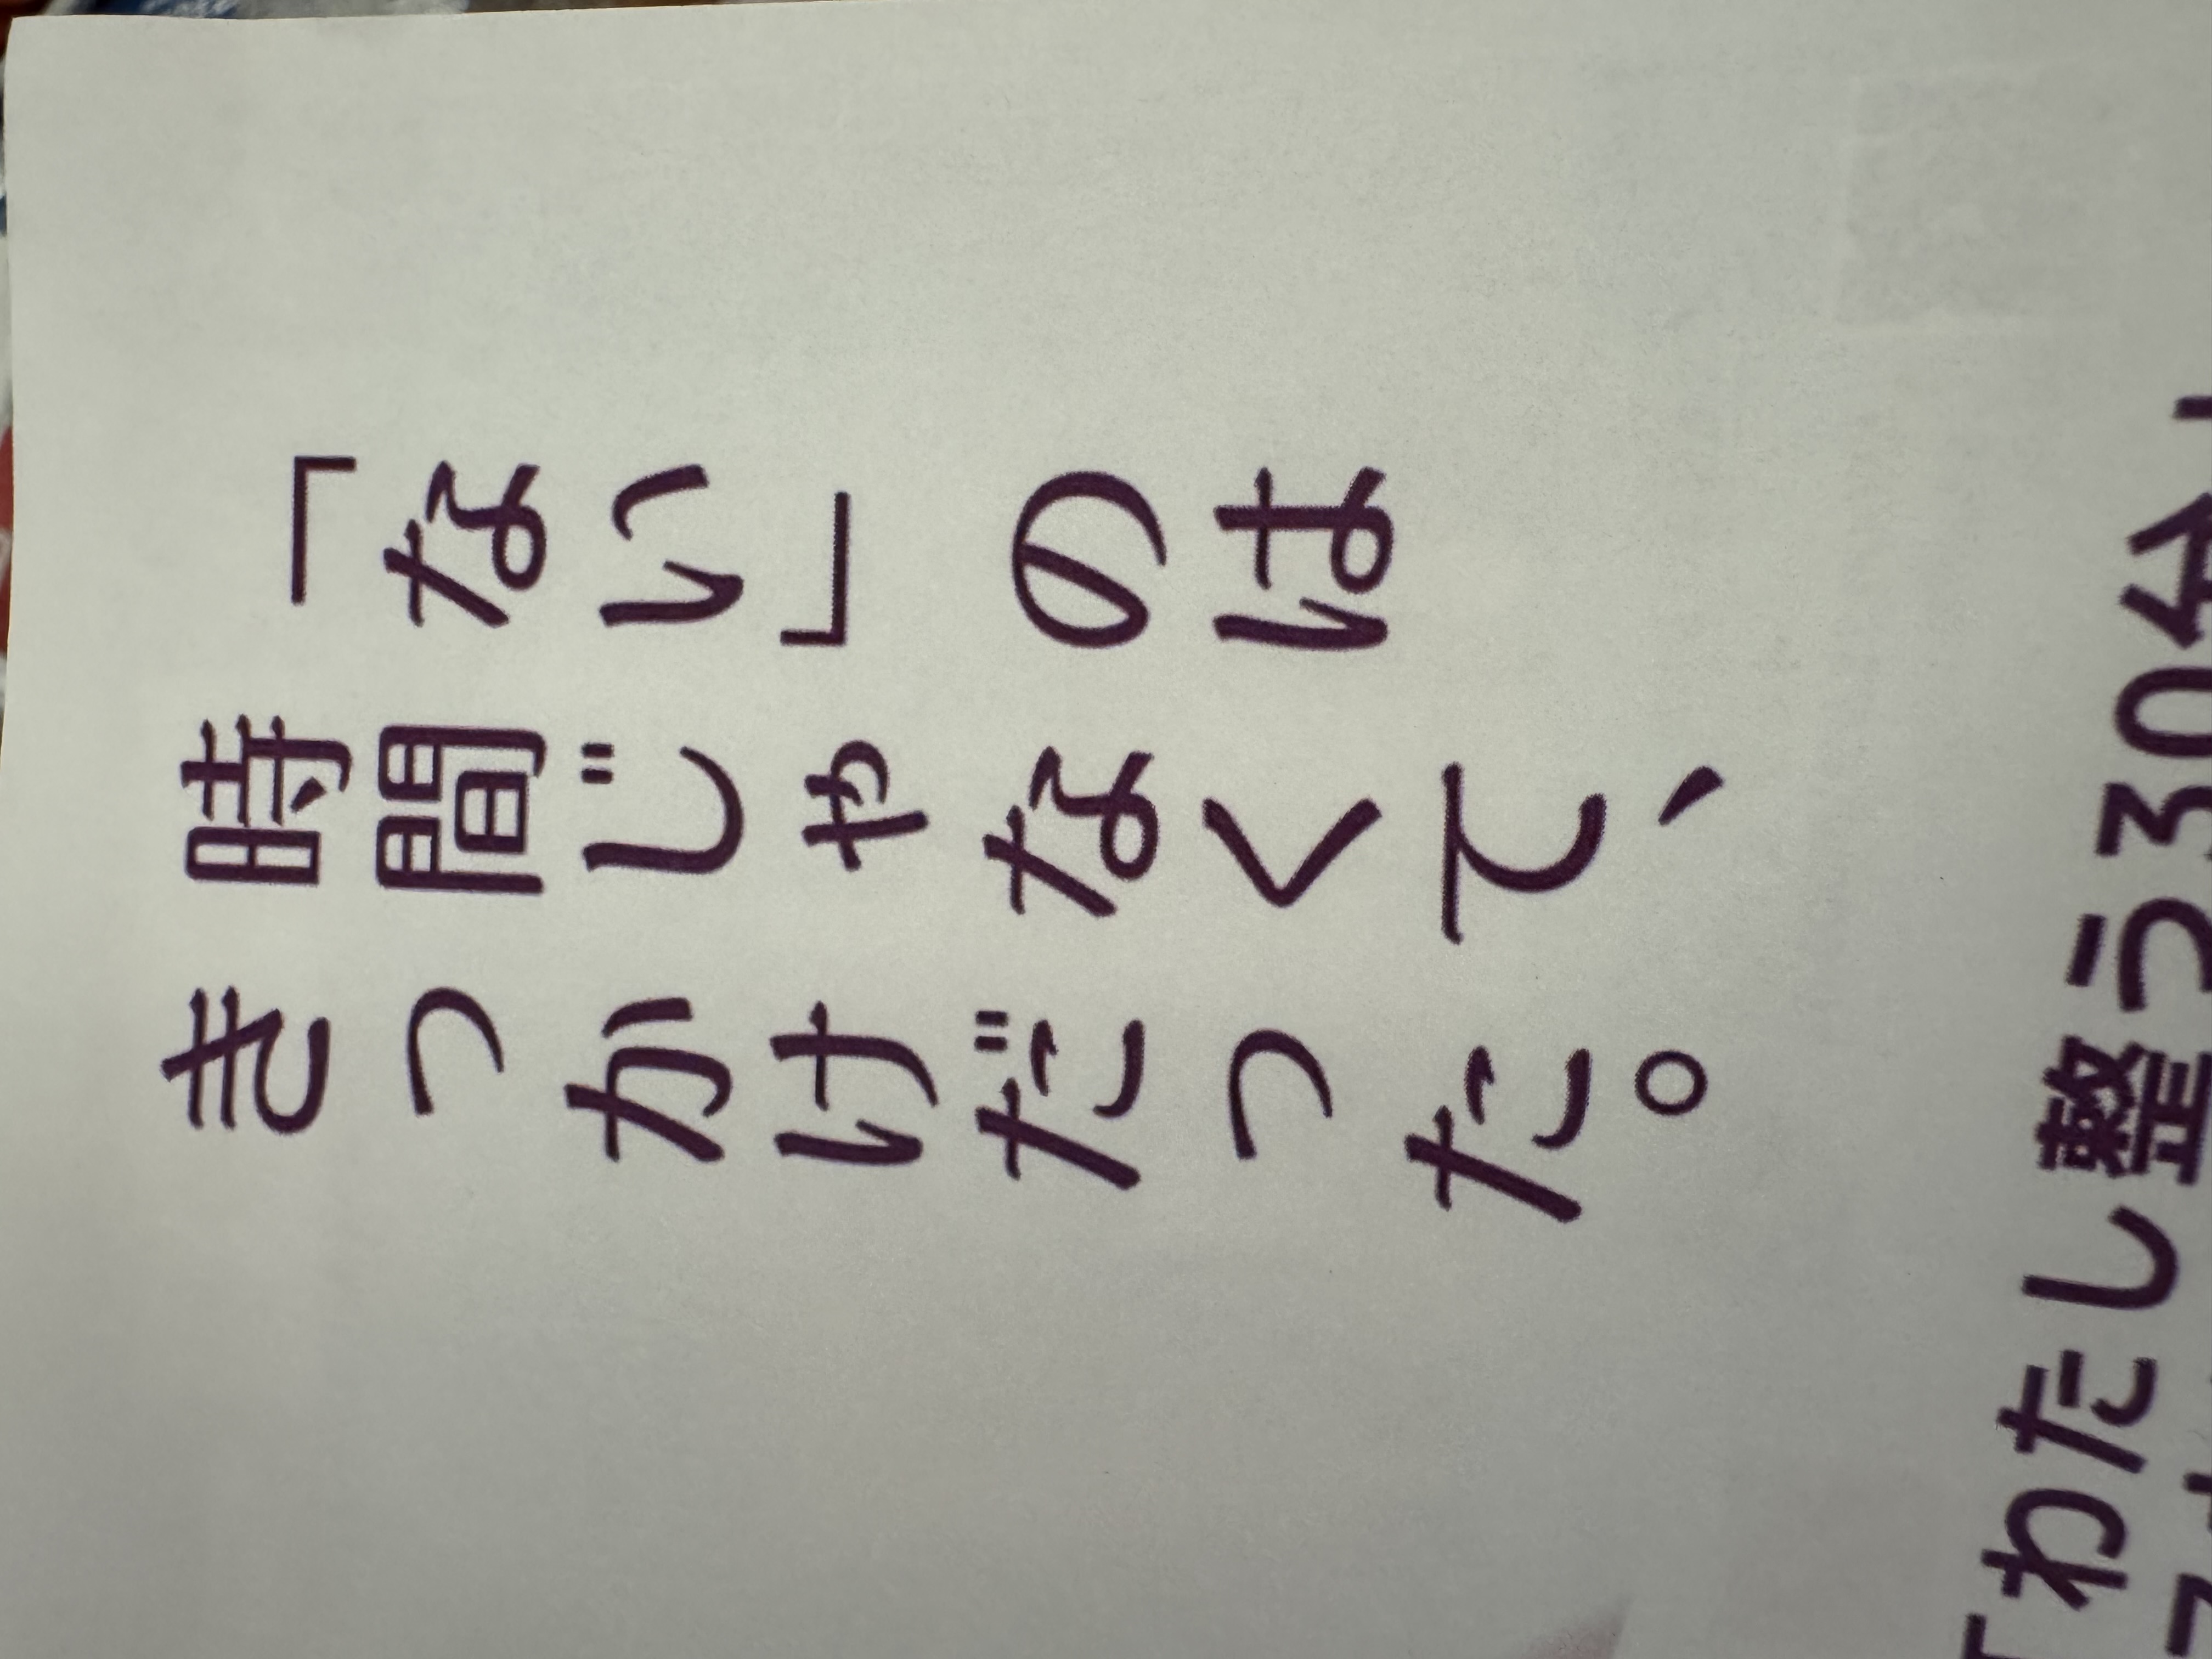 「ない」のは
時間じゃなくて、
きっかけだった。
「わたし整う30分」